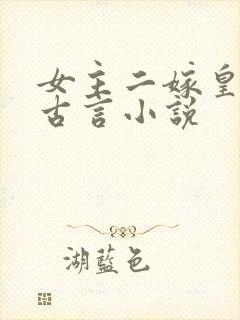 女主二嫁皇
古言小說
湖藍色